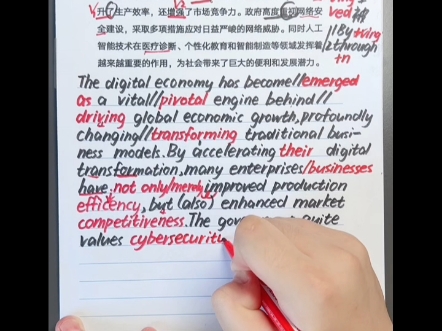 升了生产效率，还增强了市场竞争力。政府高度重视网络安
全建设，采取多项措施应对日益严峻的网络威胁。同时人工
智能技术在医疗诊断、个性化教育和智能制造等领域发挥着
越来越重要的作用，为社会带来了巨大的便利和发展潜力。
ved
//By+ving
through
The digital economy has become//emerged
as a vital//pivotal engine behind//
driving global economic growth,profoundly
changing//transforming traditional busi-
ness models.By accelerating their digital
transformation,many enterprises/businesses
have not only/merely improved production
efficency,but (also) enhanced market
competitiveness.The quite
values cybersecurity